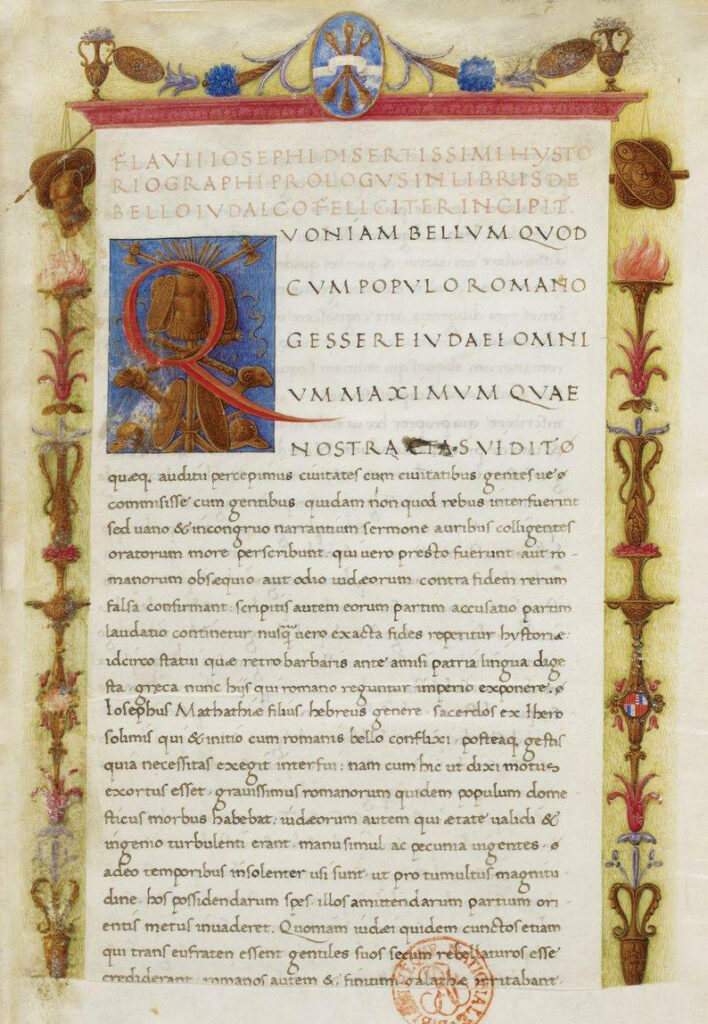 FLAVII IOSEPHI DISERTISSIMI HYSTO
RIOGRAPHI PROLOGVS IN LIBRIS DE
BELLO IVDAICO FELICITER INCIPIT.
QVONIAM BELLVM QVOD
CVM POPVLO ROMANO
GESSERE IVDAEI OMNI
VM MAXIMVM QVAE
NOSTRA AETAS VIDIT
quæq. auditu percepimus civitates cum civitatibus gentes ve
commisisse cum gentibus quidam non quod rebus interfuerint
sed vano & incongruo narrantium sermone auribus colligentes
oratorum more perscribunt. qui vero presto fuerunt aut ro-
manorum obsequio aut odio iudæorum contra fidem rerum
falsa confirmant. scriptis autem eorum partim accusatio partim
laudatio continetur nusq̃ vero exacta fides reperitur hystoriæ.
idcirco statui quæ retro barbaris ante amisi patria lingua dige
sta. græca nunc hijs qui romano reguntur imperio exponere.
Iosephus Mathathiæ filius, hebreus genere. sacerdos ex Ihero
solimis qui & initio cum romanis bello conflixi. posteaq. gestis
quia necessitas exegit interfui. nam cum hic ut dixi motus
exortus esset. gravissimus romanorum quidem populum dome
sticus morbus habebat. iudæorum autem qui ætate validi &
ingenio turbulenti erant. manu simul ac pecunia vigentes.
adeo temporibus insolenter usi sunt. ut pro tumultus magnitu
dine. hos possidendarum spes. illos amittendarum partium ori-
entis metus invaderet. Quoniam iudæi quidem cunctos etiam
qui trans eufraten essent gentiles suos secum rebellaturos esse
crediderant. romanos autem & finitimi galathæ irritabant.